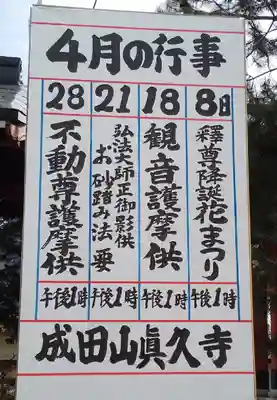 4月の行事
8日
釋尊降誕花まつり
午後1時
18
観音護摩供
午後1時
21
弘法大師正御影供
お砂踏み法要
午後1時
28
不動尊護摩供
午後1時
成田山眞久寺